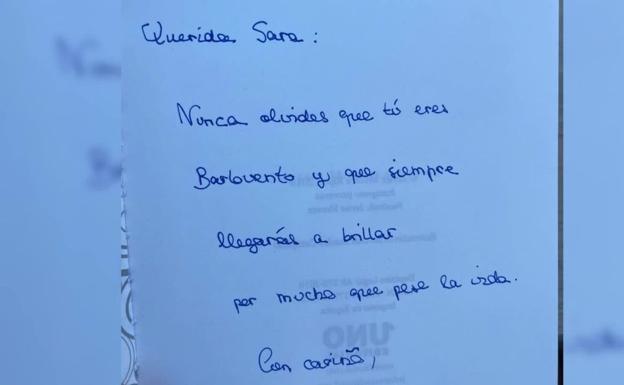 Querida Sara:
Nunca olvides que tú eres
Barlovento y que siempre
llegarás a brillar
por mucho que pese la vida.
Con cariño,
UNO